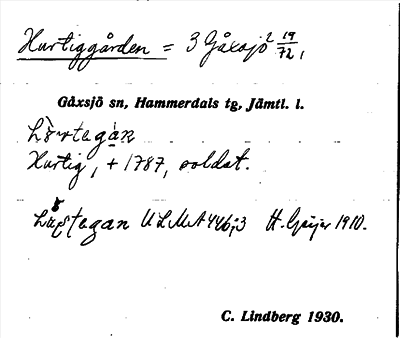 Hurtiggården = 3 Gåxsjö² 19/72,
Gåxsjö sn, Hammerdals tg, Jämtl. l.
Hurtig, + 1787, soldat.
ULMA 446;3 H. Geijer 1910.
C. Lindberg 1930.